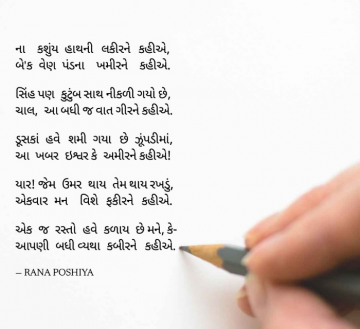 ના કશુંય હાથની લકીરને કહીએ,
બે'ક વેણ પંડના ખમીરને કહીએ.
સિંહ પણ કુટુંબ સાથ નીકળી ગયો છે,
ચાલ, આ બધી જ વાત ગીરને કહીએ.
ડૂસકાં હવે શમી ગયા છે ઝૂંપડીમાં,
આ ખબર ઇશ્વર કે અમીરને કહીએ!
યાર! જેમ ઉમર થાય તેમ થાય રખડું,
એકવાર મન વિશે ફકીરને કહીએ.
એક જ રસ્તો હવે કળાય છે મને, કે-
આપણી બધી વ્યથા કબીરને કહીએ.
– RANA POSHIYA